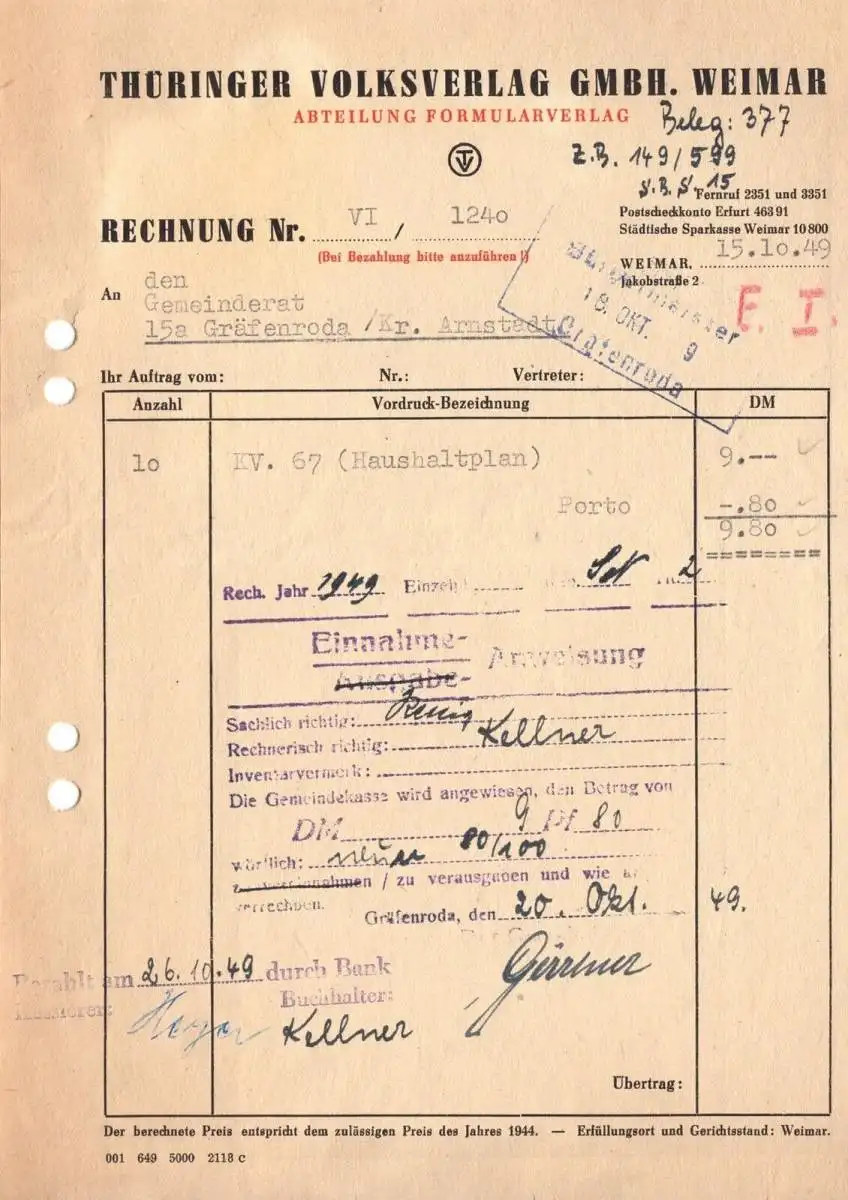 THÜRINGER VOLKSVERLAG GMBH. WEIMAR
ABTEILUNG FORMULARVERLAG
Beleg: 377
Z.B. 149/599
S.B. S. 15
Fernruf 2351 und 3351
Postscheckkonto Erfurt 46391
Städtische Sparkasse Weimar 10800
RECHNUNG Nr. VI / 1240
(Bei Bezahlung bitte anzuführen!)
WEIMAR, 15.10.49
Jakobstraße 2
An den
Gemeinderat
15a Gräfenroda /Kr. Arnstadt
Bürgermeister
18. OKT. 9
Gräfenroda
E. I.
Ihr Auftrag vom: Nr.: Vertreter:
Anzahl Vordruck-Bezeichnung DM
10 KV. 67 (Haushaltplan) 9.--
Porto -.80
9.80
========
Rech. Jahr 1949 Einzelpl 2
Einnahme-
Ausgabe- Anweisung
Sachlich richtig:
Rechnerisch richtig: Kellner
Inventarvermerk:
Die Gemeindekasse wird angewiesen, den Betrag von
DM 9 Pf 80
wörtlich: neun 80/100
zu vereinnahmen / zu verausgaben und wie
verrechnen.
Gräfenroda, den 20. Okt. 49.
Bezahlt am 26.10.49 durch Bank
Kassierer: Buchhalter:
Kellner
Übertrag:
Der berechnete Preis entspricht dem zulässigen Preis des Jahres 1944. — Erfüllungsort und Gerichtsstand: Weimar.
001 649 5000 2118 c